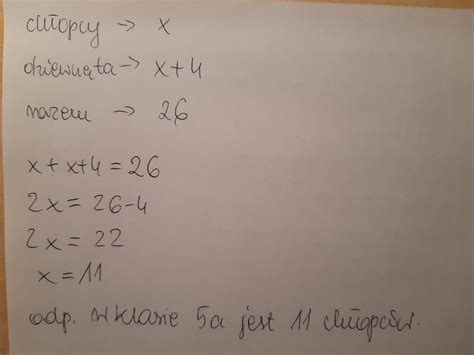 chłopcy -> x
dziewczęta -> x+4
razem -> 26
x + x+4 = 26
2x = 26-4
2x = 22
x = 11
odp. w klasie 5a jest 11 chłopców.